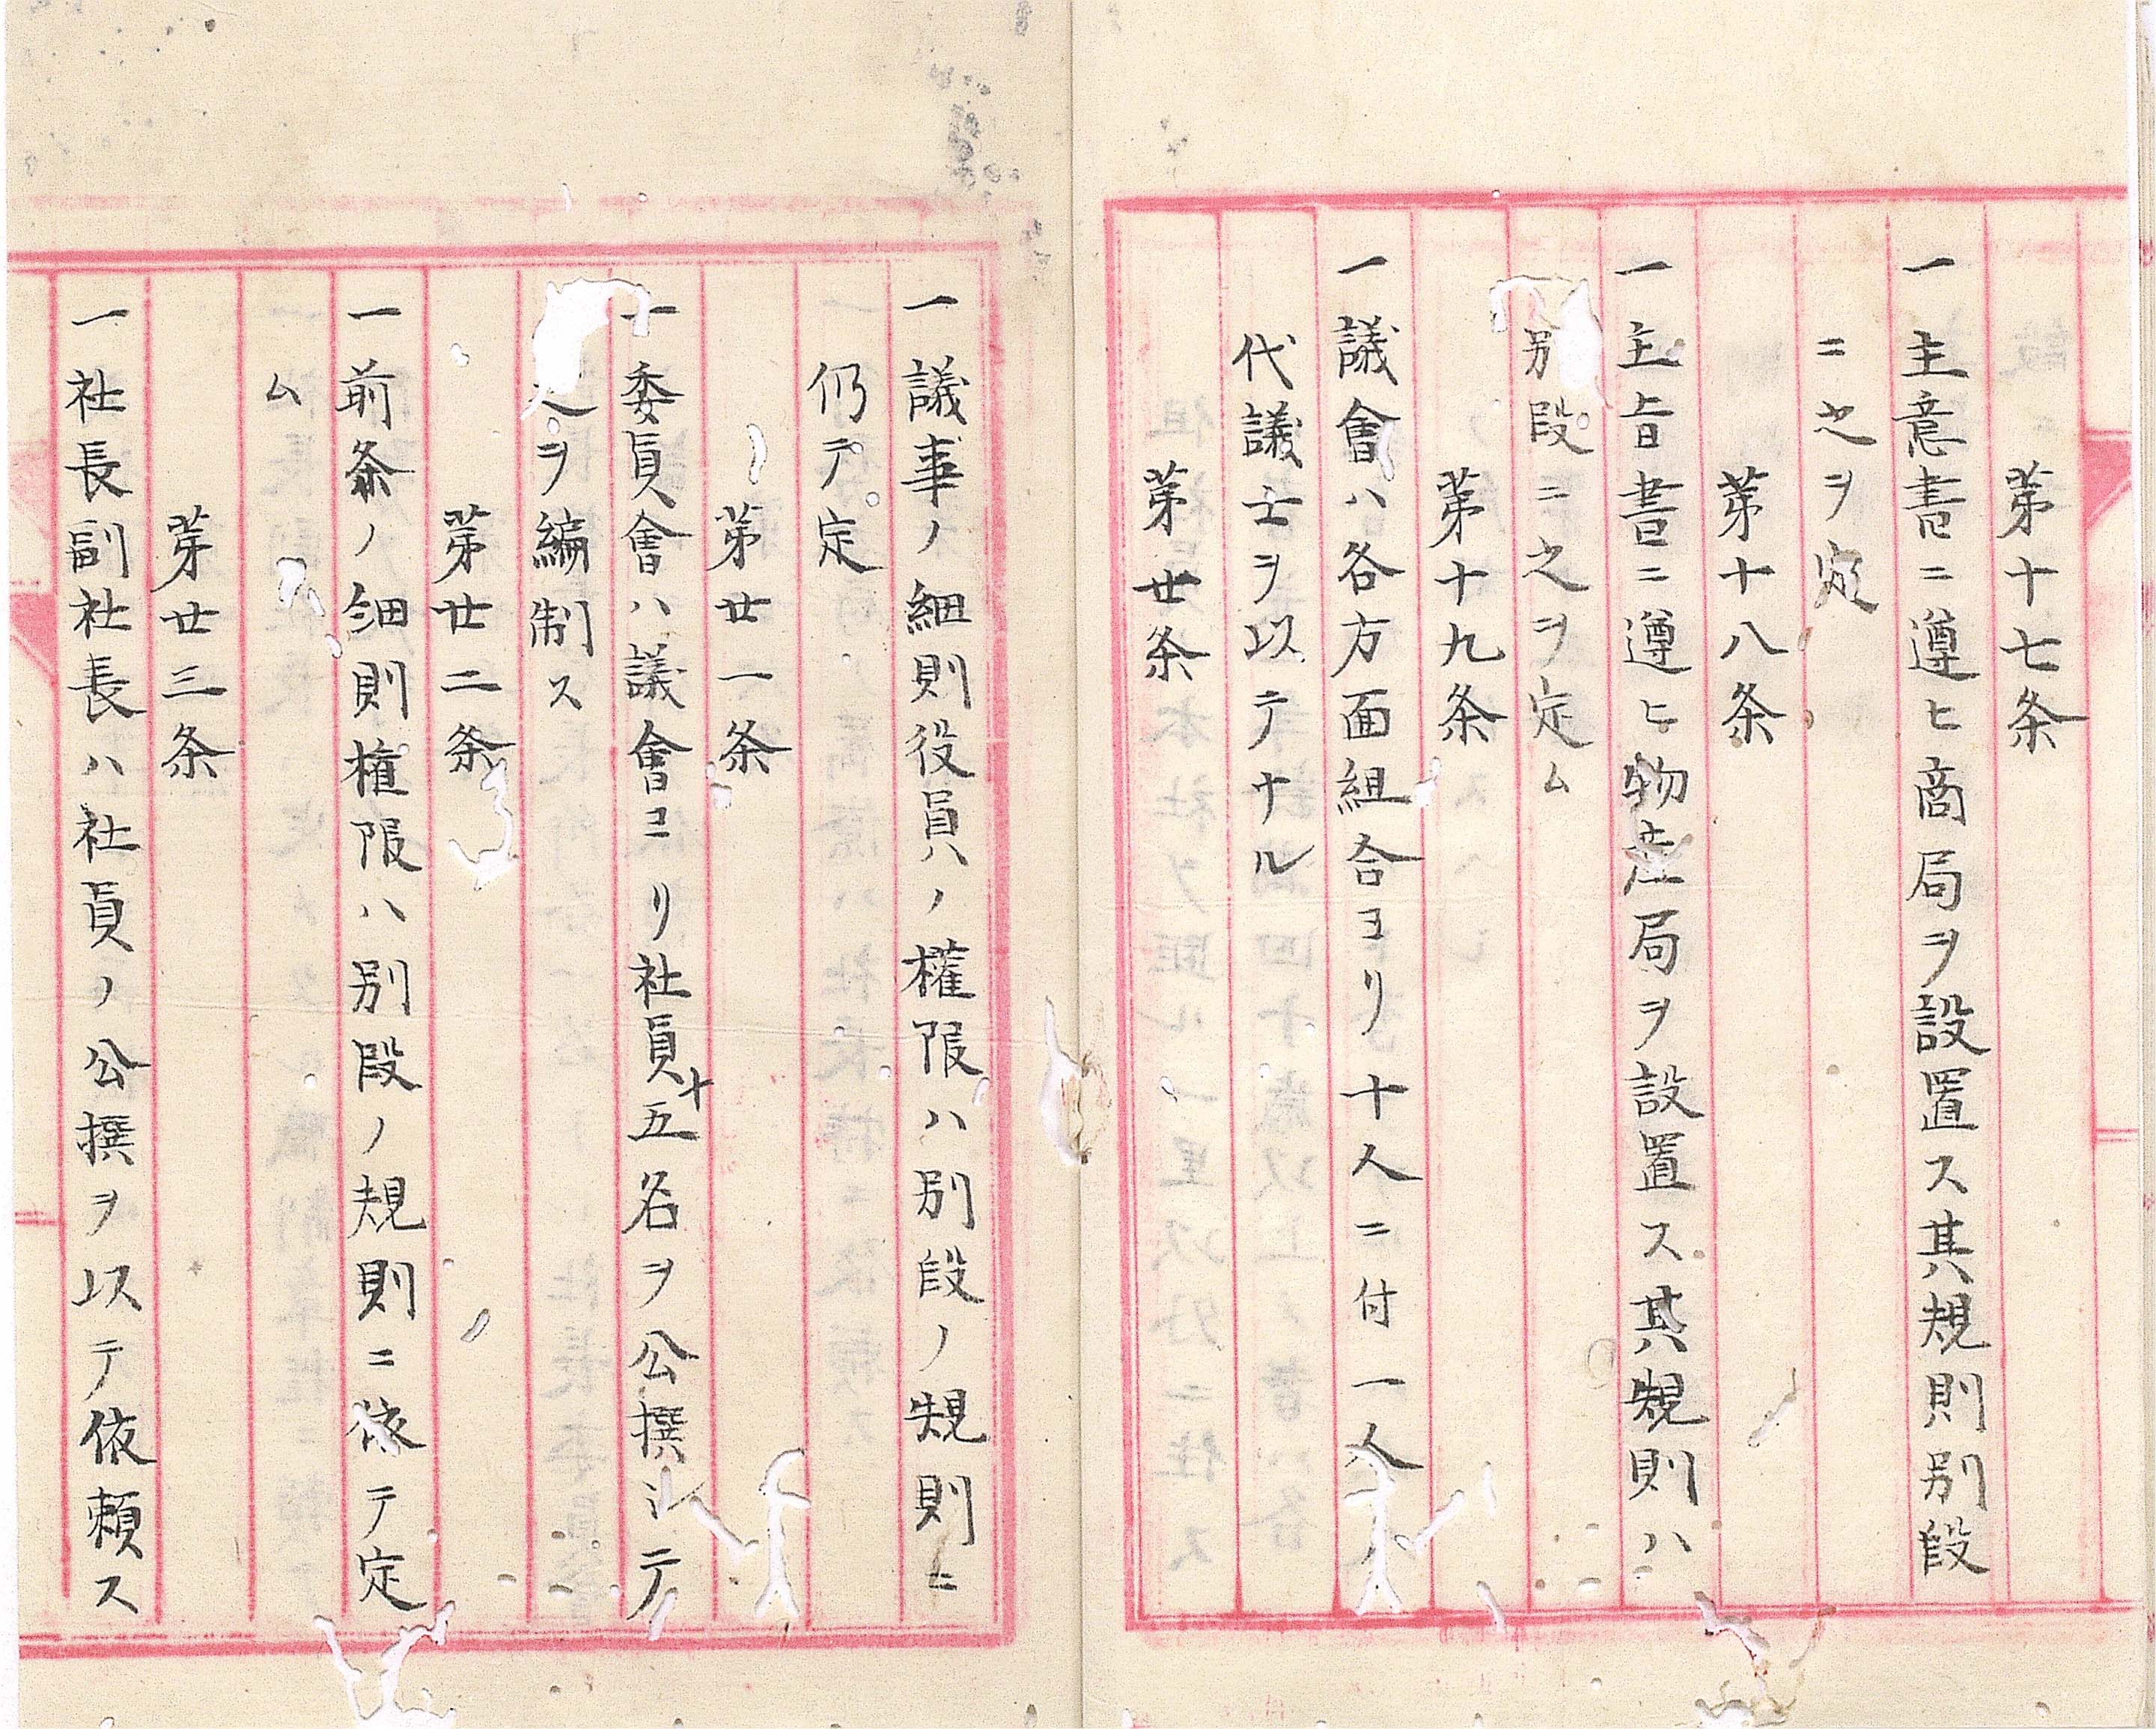 第十七条
一主意書ニ遵ヒ商局ヲ設置ス其規則別段
ニ之ヲ定
第十八条
一主旨書ニ遵ヒ物産局ヲ設置ス其規則ハ
別段ニ之ヲ定ム
第十九条
一議會ハ各方面組合ヨリ十人ニ付一人
代議士ヲ以テナル
第廿条
一議事ノ細則役員ハノ權限ハ別段ノ規則ニ
仍テ定
第廿一条
一委員會ハ議會ヨリ社員十五名ヲ公撰シテ
之ヲ編制ス
第廿二条
一前条ノ細則権限ハ別段ノ規則ニ依テ定
ム
第廿三条
一社長副社長ハ社員ノ公撰ヲ以テ依頼ス